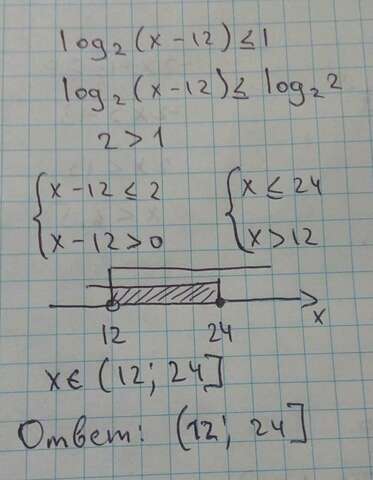 log₂(x-12)≤1
log₂(x-12)≤ log₂2
2>1
{x-12≤2 {x≤24
{x-12>0 {x>12
12 24 x
x∈ (12; 24]
Ответ: (12; 24]